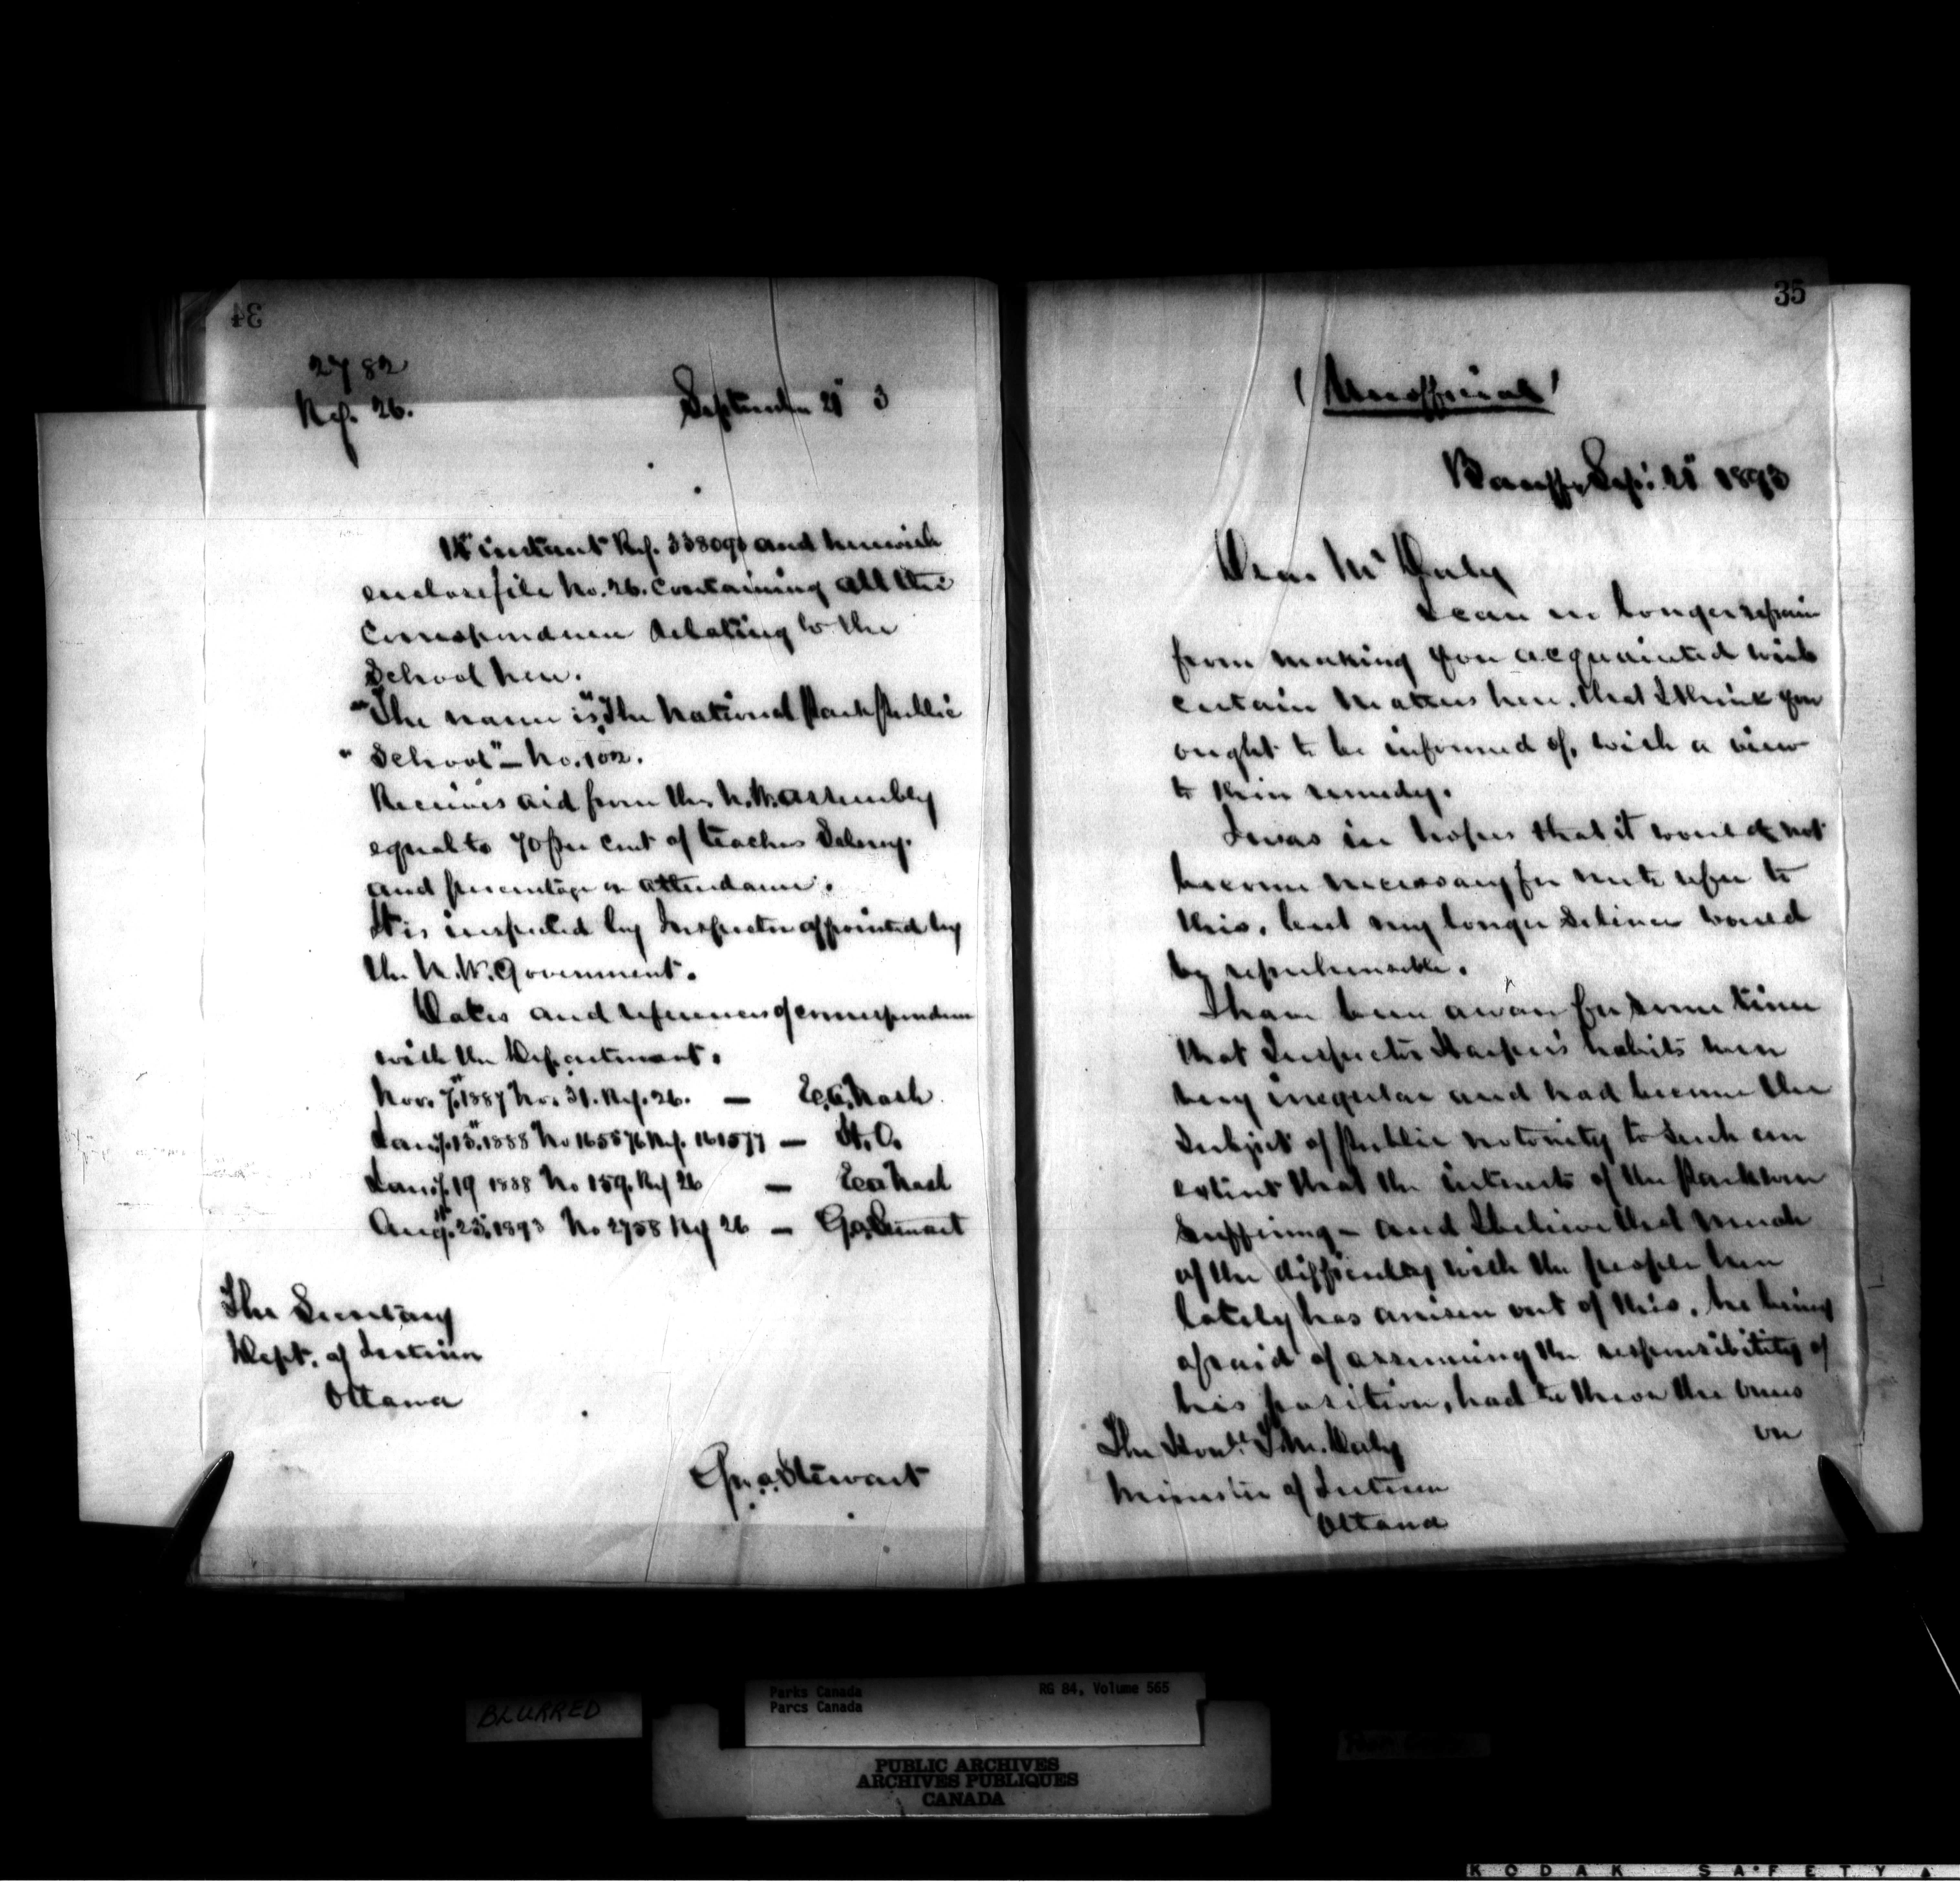 34
2782
Ref. 26.
September 21st 3
14th instant Ref. 338090 and herewith
enclose file No. 26. containing all the
Correspondence relating to the
School here.
"The name is "The National Park Public
" School" – No. 102.
Receives aid from the N.W. Assembly
equal to 70 per cent of teachers Salary.
and percentage on attendance.
It is inspected by Inspector appointed by
the N.W. Government.
Dates and references of correspondence
with the Department.
Nov. 7th 1887 No. 31. Ref. 26. – E.A. Nash
Jany. 13th 1888 No 165576 Ref. 161577 – H.O.
Jany. 19 1888 No 159. Ref 26 – E.A. Nash
Augt. 23rd 1893 No 2758 Ref 26 – Geo. Stewart
The Secretary
Dept. of Interior
Ottawa
Geo. A. Stewart
35
(Unofficial)
Banff, Sept. 21st 1893
Dear Mr Daly
I can no longer refrain
from making you acquainted with
certain matters here. that I think you
ought to be informed of, with a view
to their remedy.
I was in hopes that it would not
become necessary for me to refer to
this, but my longer silence would
be reprehensible.
I have been aware for some time
that Inspector Harper's habits were
very irregular and had become the
subject of public notoriety to such an
extent that the interests of the Park were
suffering – and I believe that much
of the difficulty with the people here
lately has arisen out of this, he being
afraid of assuming the responsibility of
his position, had to throw the onus
on
The Honble. T.M. Daly
Minister of Interior
Ottawa
BLURRED
Parks Canada
Parcs Canada
RG 84, Volume 565
PUBLIC ARCHIVES
ARCHIVES PUBLIQUES
CANADA
KODAK SAFETY